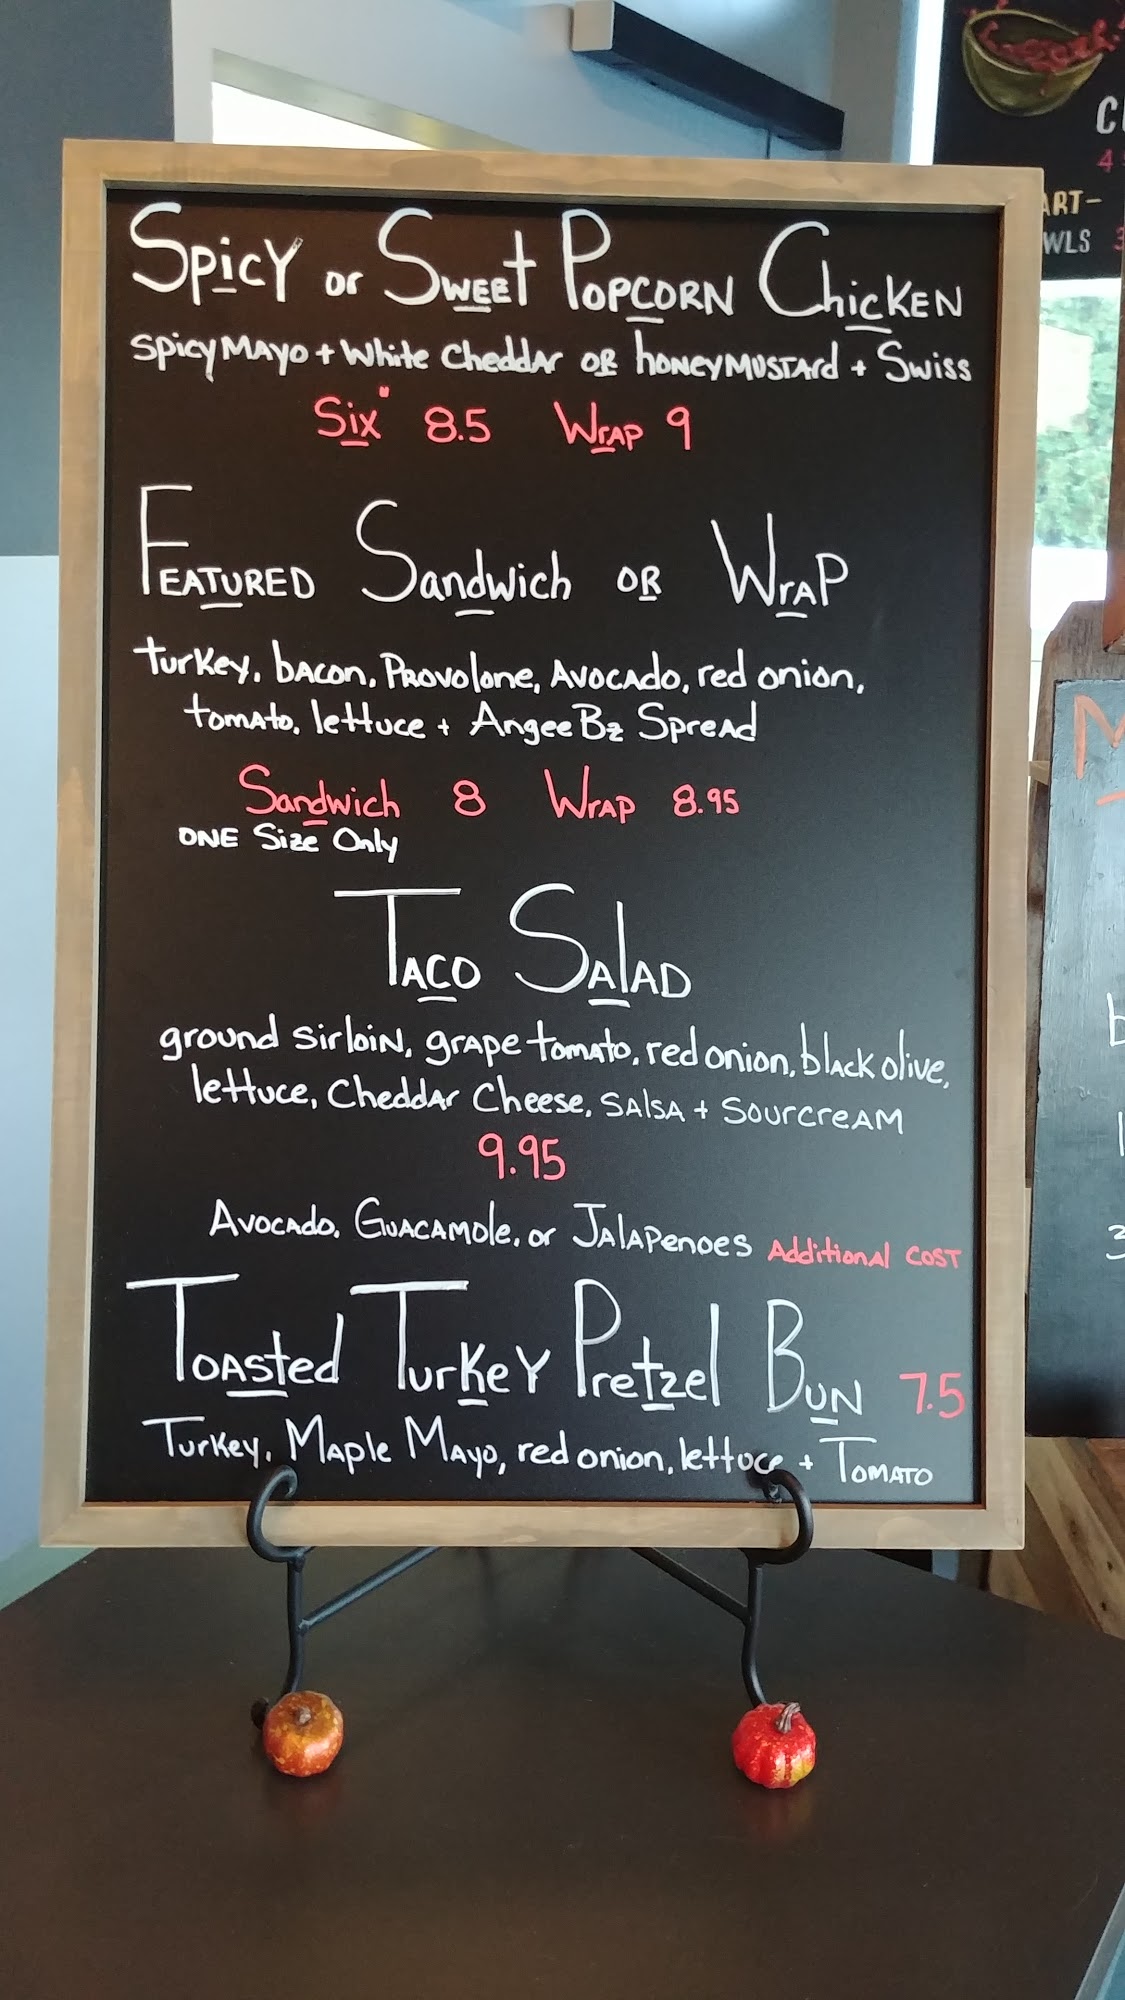 Spicy or Sweet Popcorn Chicken
Spicy Mayo + White Cheddar or honey mustard + Swiss
Six" 8.5 Wrap 9
Featured Sandwich or Wrap
turkey, bacon, Provolone, Avocado, red onion,
tomato, lettuce + AngeeBz Spread
Sandwich 8 Wrap 8.95
ONE Size Only
Taco Salad
ground sirloin, grape tomato, red onion, black olive,
lettuce, Cheddar Cheese, salsa + sourcream
9.95
Avocado, Guacamole, or Jalapenoes Additional cost
Toasted Turkey Pretzel Bun 7.5
Turkey, Maple Mayo, red onion, lettuce + Tomato